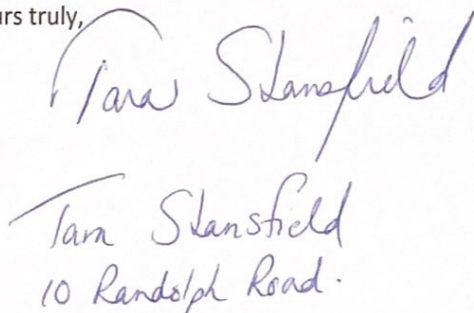 urs truly,
Tara Stansfield
Tara Stansfield
10 Randolph Road.